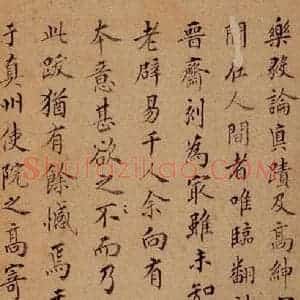 樂毅論真蹟及高紳
在人間者唯臨翻
晉齋刻為最雖未知
老辟易千人余向有
本意甚欲之不而乃
此跋猶有餘憾焉
于真州使院之高寄
Shufaziliao.COM